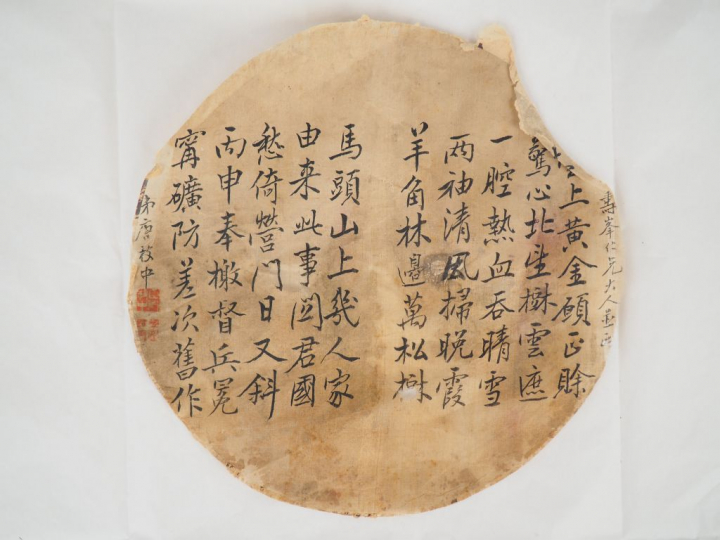 壽峯仁兄大人
上黃金礦正賒
驚心北望樹雲遮
一腔熱血吞晴雪
兩袖清風掃晚霞
羊角林邊萬松樹
馬頭山上幾人家
由來此事關君國
愁倚營門日又斜
丙申奉檄督兵冕
甯礦防差次舊作
弟唐 中